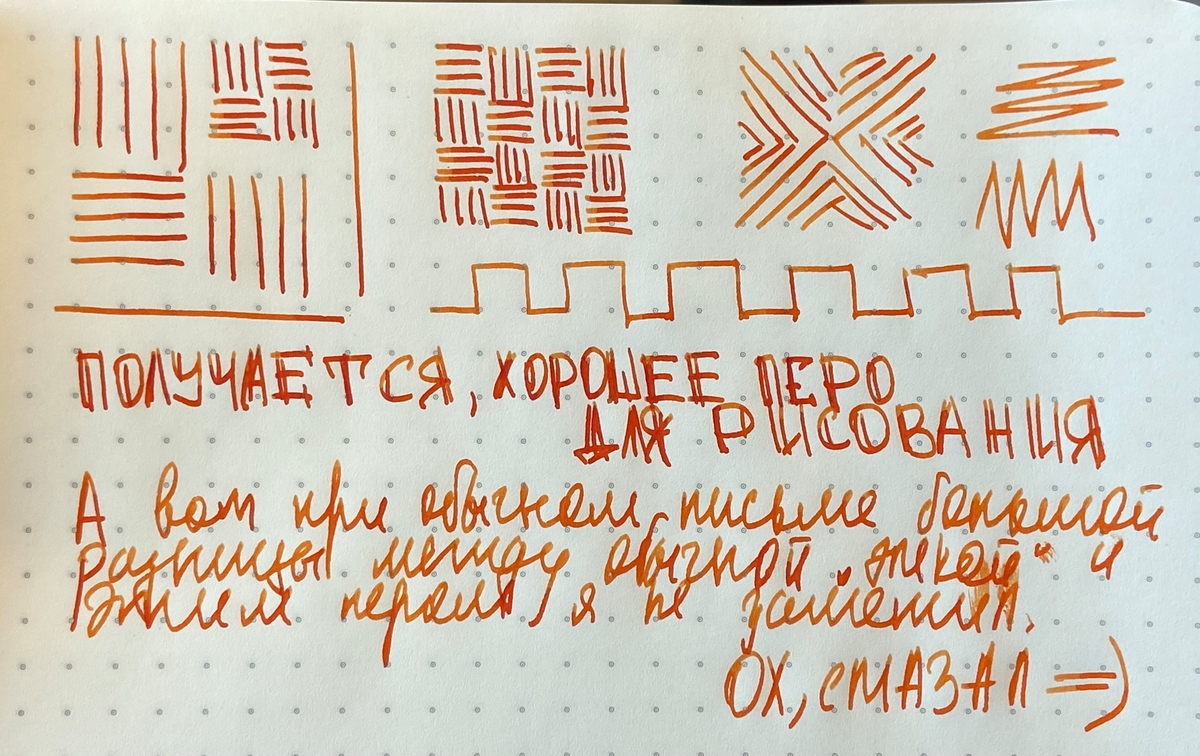 ПОЛУЧАЕТСЯ, ХОРОШЕЕ ПЕРО
ДЛЯ РИСОВАНИЯ
А вот при обычном письме большой
разницы между обычной „экой“ и
этим пером я не заметил.
ОХ, СМАЗАЛ =)